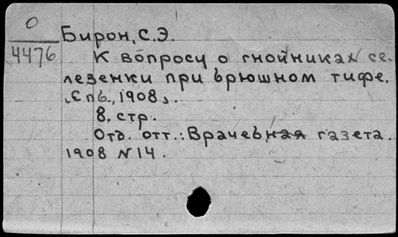 О
4476
Бирон, С.Э.
К вопросу о гнойниках се-
лезенки при брюшном тифе.
„Спб., 1908„.
8. стр.
Отд. отт.: Врачебная газета.
1908 N14.